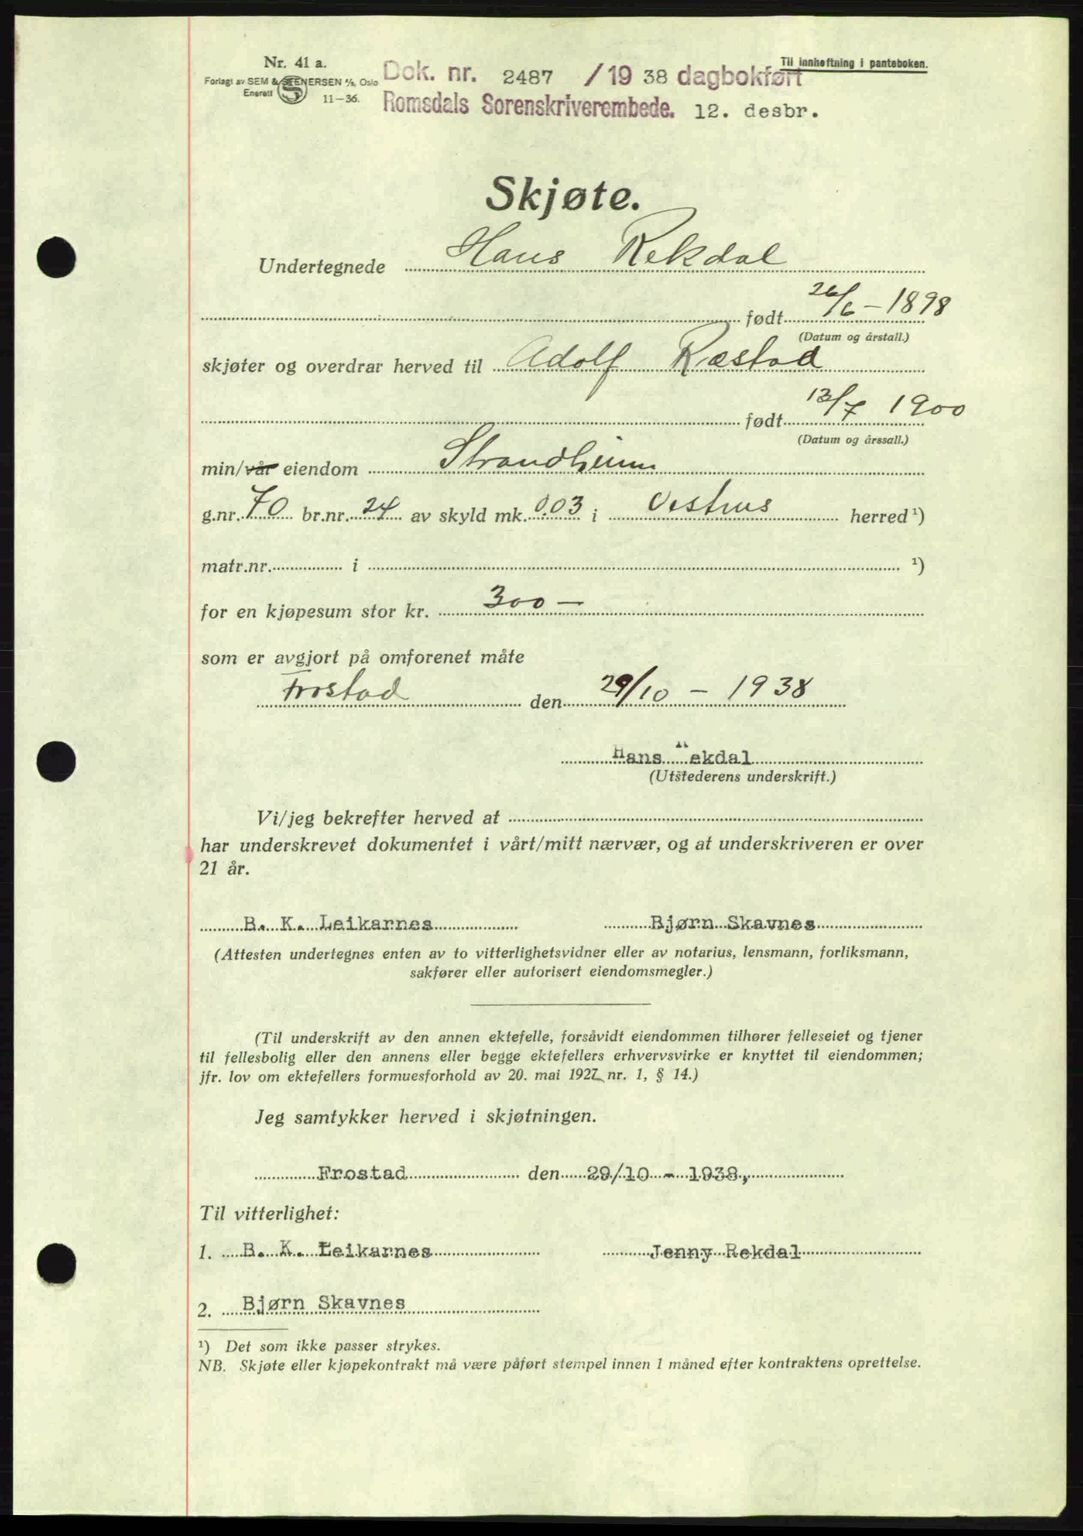 Nr. 41 a.
Forlagt av SEM & STENERSEN A/S, Oslo
Enerett
11-36.
Til innheftning i panteboken.
Dok. nr. 2487 /19 38 dagbokført
Romsdals Sorenskriverembede. 12. desbr.
Skjøte.
Undertegnede Hans Rekdal
født 26/6 - 1898
(Datum og årstall.)
skjøter og overdrar herved til Adolf Ræstad
født 13/7 1900
(Datum og årssall.)
min/vår eiendom Strandheim
g.nr. 70 br.nr. 24 av skyld mk. 0.03 i Vestnes herred ¹)
matr.nr. i ¹)
for en kjøpesum stor kr. 300 -
som er avgjort på omforenet måte
Frostad den 29/10 - 1938
Hans Rekdal
(Utstederens underskrift.)
Vi/jeg bekrefter herved at
har underskrevet dokumentet i vårt/mitt nærvær, og at underskriveren er over
21 år.
B. K. Leikarnes Bjørn Skavnes
(Attesten undertegnes enten av to vitterlighetsvidner eller av notarius, lensmann, forliksmann,
sakfører eller autorisert eiendomsmegler.)
(Til underskrift av den annen ektefelle, forsåvidt eiendommen tilhører felleseiet og tjener
til fellesbolig eller den annens eller begge ektefellers erhvervsvirke er knyttet til eiendommen;
jfr. lov om ektefellers formuesforhold av 20. mai 1927 nr. 1, § 14.)
Jeg samtykker herved i skjøtningen.
Frostad den 29/10 - 1938,
Til vitterlighet:
1. B. K. Leikarnes Jenny Rekdal
2. Bjørn Skavnes
¹) Det som ikke passer strykes.
NB. Skjøte eller kjøpekontrakt må være påført stempel innen 1 måned efter kontraktens oprettelse.